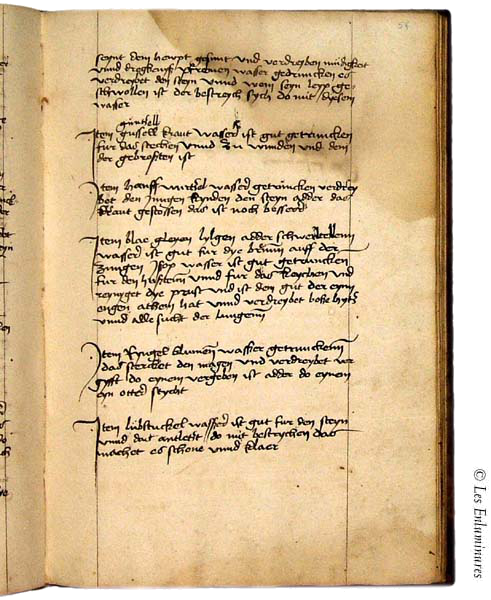 54
seynt dem hewpt gesunt vnd verdreyben mudigkeit
vnnd wasser getruncken es
verdreybet den steyn vnnd wem seyn leyp ge-
schwollen ist der bestreych sych do mit diesem
wasser
günthell
Item gussell kraut wasser ist gut getruncken
fur das stechen vnnd zu wunden vnd dem
der gebrosten ist
Item hanff wurtzel wasser getruncken verdrey
bet den Jungen kynden den steyn adder das
kraut gestossen das ist noch besserr
Item blae lylgen adder schwertellenn
wasser ist gut fur dye brunn auff der
zungen Isop wasser ist gut getruncken
fur den husten vnnd fur das keychen vnd
reyniget dye prust vnd ist dem gut der eyn
engen athem hat vnnd verdreybet bose hytz
vnnd alle sucht der lungenn
Item Ryngel blumen wasser getrunckenn
das stercket den magen vnd verdreybet ver
gyfft do eynem vergeben ist adder do eynen
eyn otter stycht
Item lubstuckel wasser ist gut fur den steyn
vnnd dat antlitz do mit bestrychen das
machet es schone vnnd klaer
© Les Enluminures